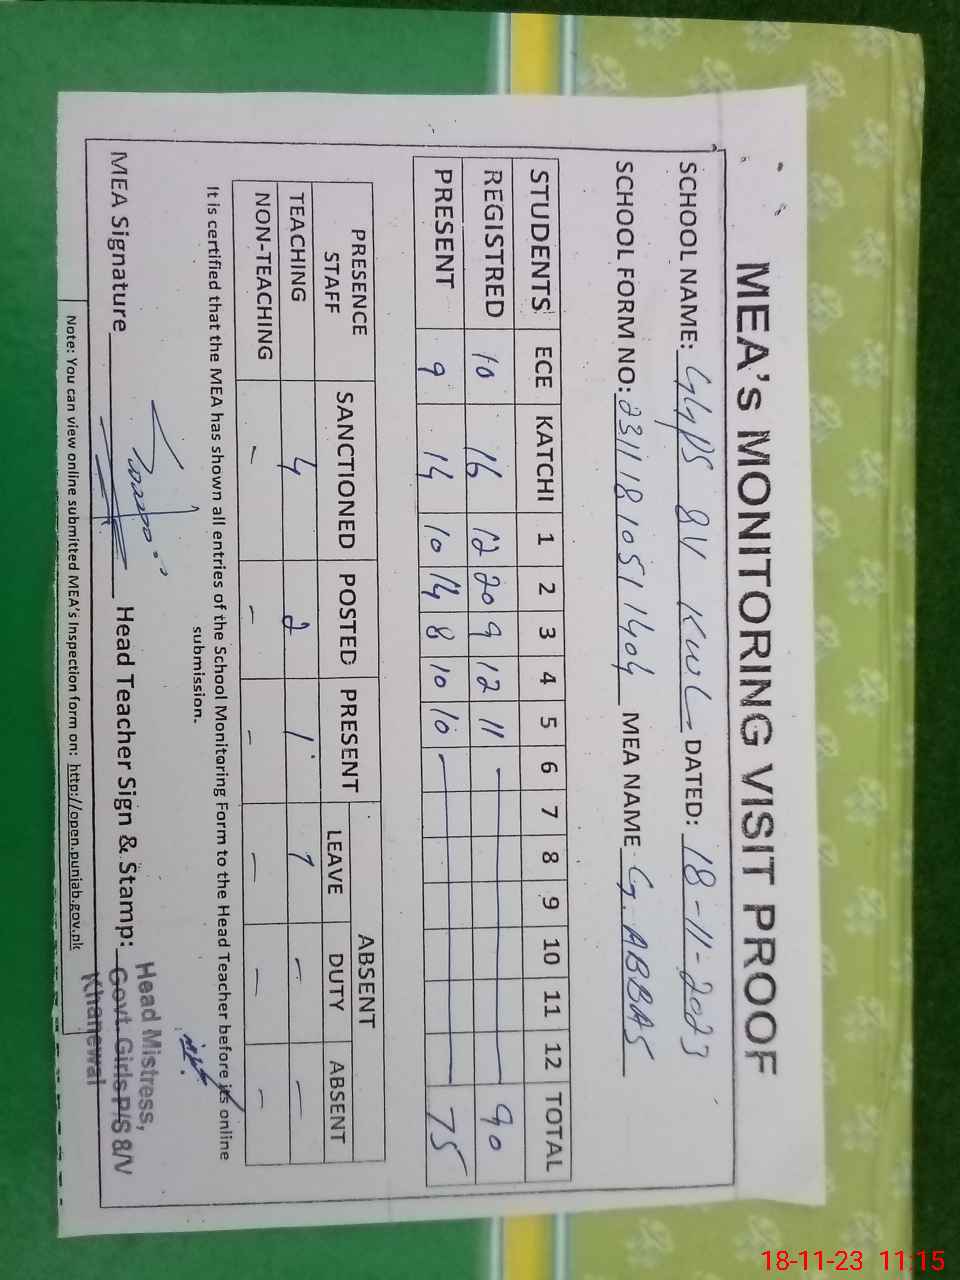 MEA's MONITORING VISIT PROOF
SCHOOL NAME: GGPS 8V KWL DATED: 18-11-2023
SCHOOL FORM NO: 23111810511404 MEA NAME G. ABBAS
STUDENTS ECE KATCHI 1 2 3 4 5 6 7 8 9 10 11 12 TOTAL
REGISTRED 10 16 12 20 9 12 11 - 90
PRESENT 9 14 10 14 8 10 10 - 75
PRESENCE STAFF SANCTIONED POSTED PRESENT ABSENT
LEAVE DUTY ABSENT
TEACHING 4 2 1 1 - -
NON-TEACHING - - - - - -
It is certified that the MEA has shown all entries of the School Monitoring Form to the Head Teacher before its online
submission.
MEA Signature Head Teacher Sign & Stamp:
Head Mistress,
Govt. Girls P/S 8/V
Khanewal
Note: You can view online submitted MEA's Inspection form on: http://open.punjab.gov.pk
18-11-23 11:15